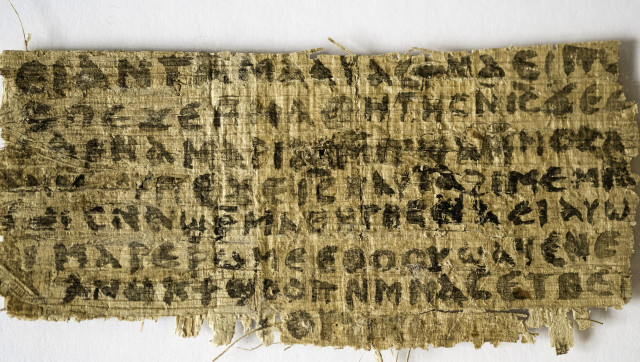 ⲉⲓ ⲁⲛ ⲧⲁⲙⲁⲁⲩ ⲁⲥϯ ⲛⲁⲉⲓ ⲡⲱ
ϫⲉ ⲙⲙⲁⲑⲏⲧⲏⲥ ⲛⲓⲥ ϫⲉ ⲥ
ⲁⲣⲛⲁ ⲙⲁⲣⲓⲁⲙ ⲙⲡϣⲁ ⲙⲙⲟⲥ ⲁ
ⲡⲉϫⲉ ⲓⲥ ⲛⲁⲩ ⲧⲁϩⲓⲙⲉ ⲙⲛ
ⲥⲛⲁϣⲣⲙⲁⲑⲏⲧⲏⲥ ⲛⲁⲉⲓ ⲁⲩⲱ
ⲓ ⲙⲁⲣⲉⲣⲱⲙⲉ ⲉⲑⲟⲟⲩ ϣⲁϥⲉ ⲛⲉ
ⲁⲛⲟⲕ ϯϣⲟⲟⲡ ⲛⲙⲙⲁⲥ ⲉⲧⲃⲉ